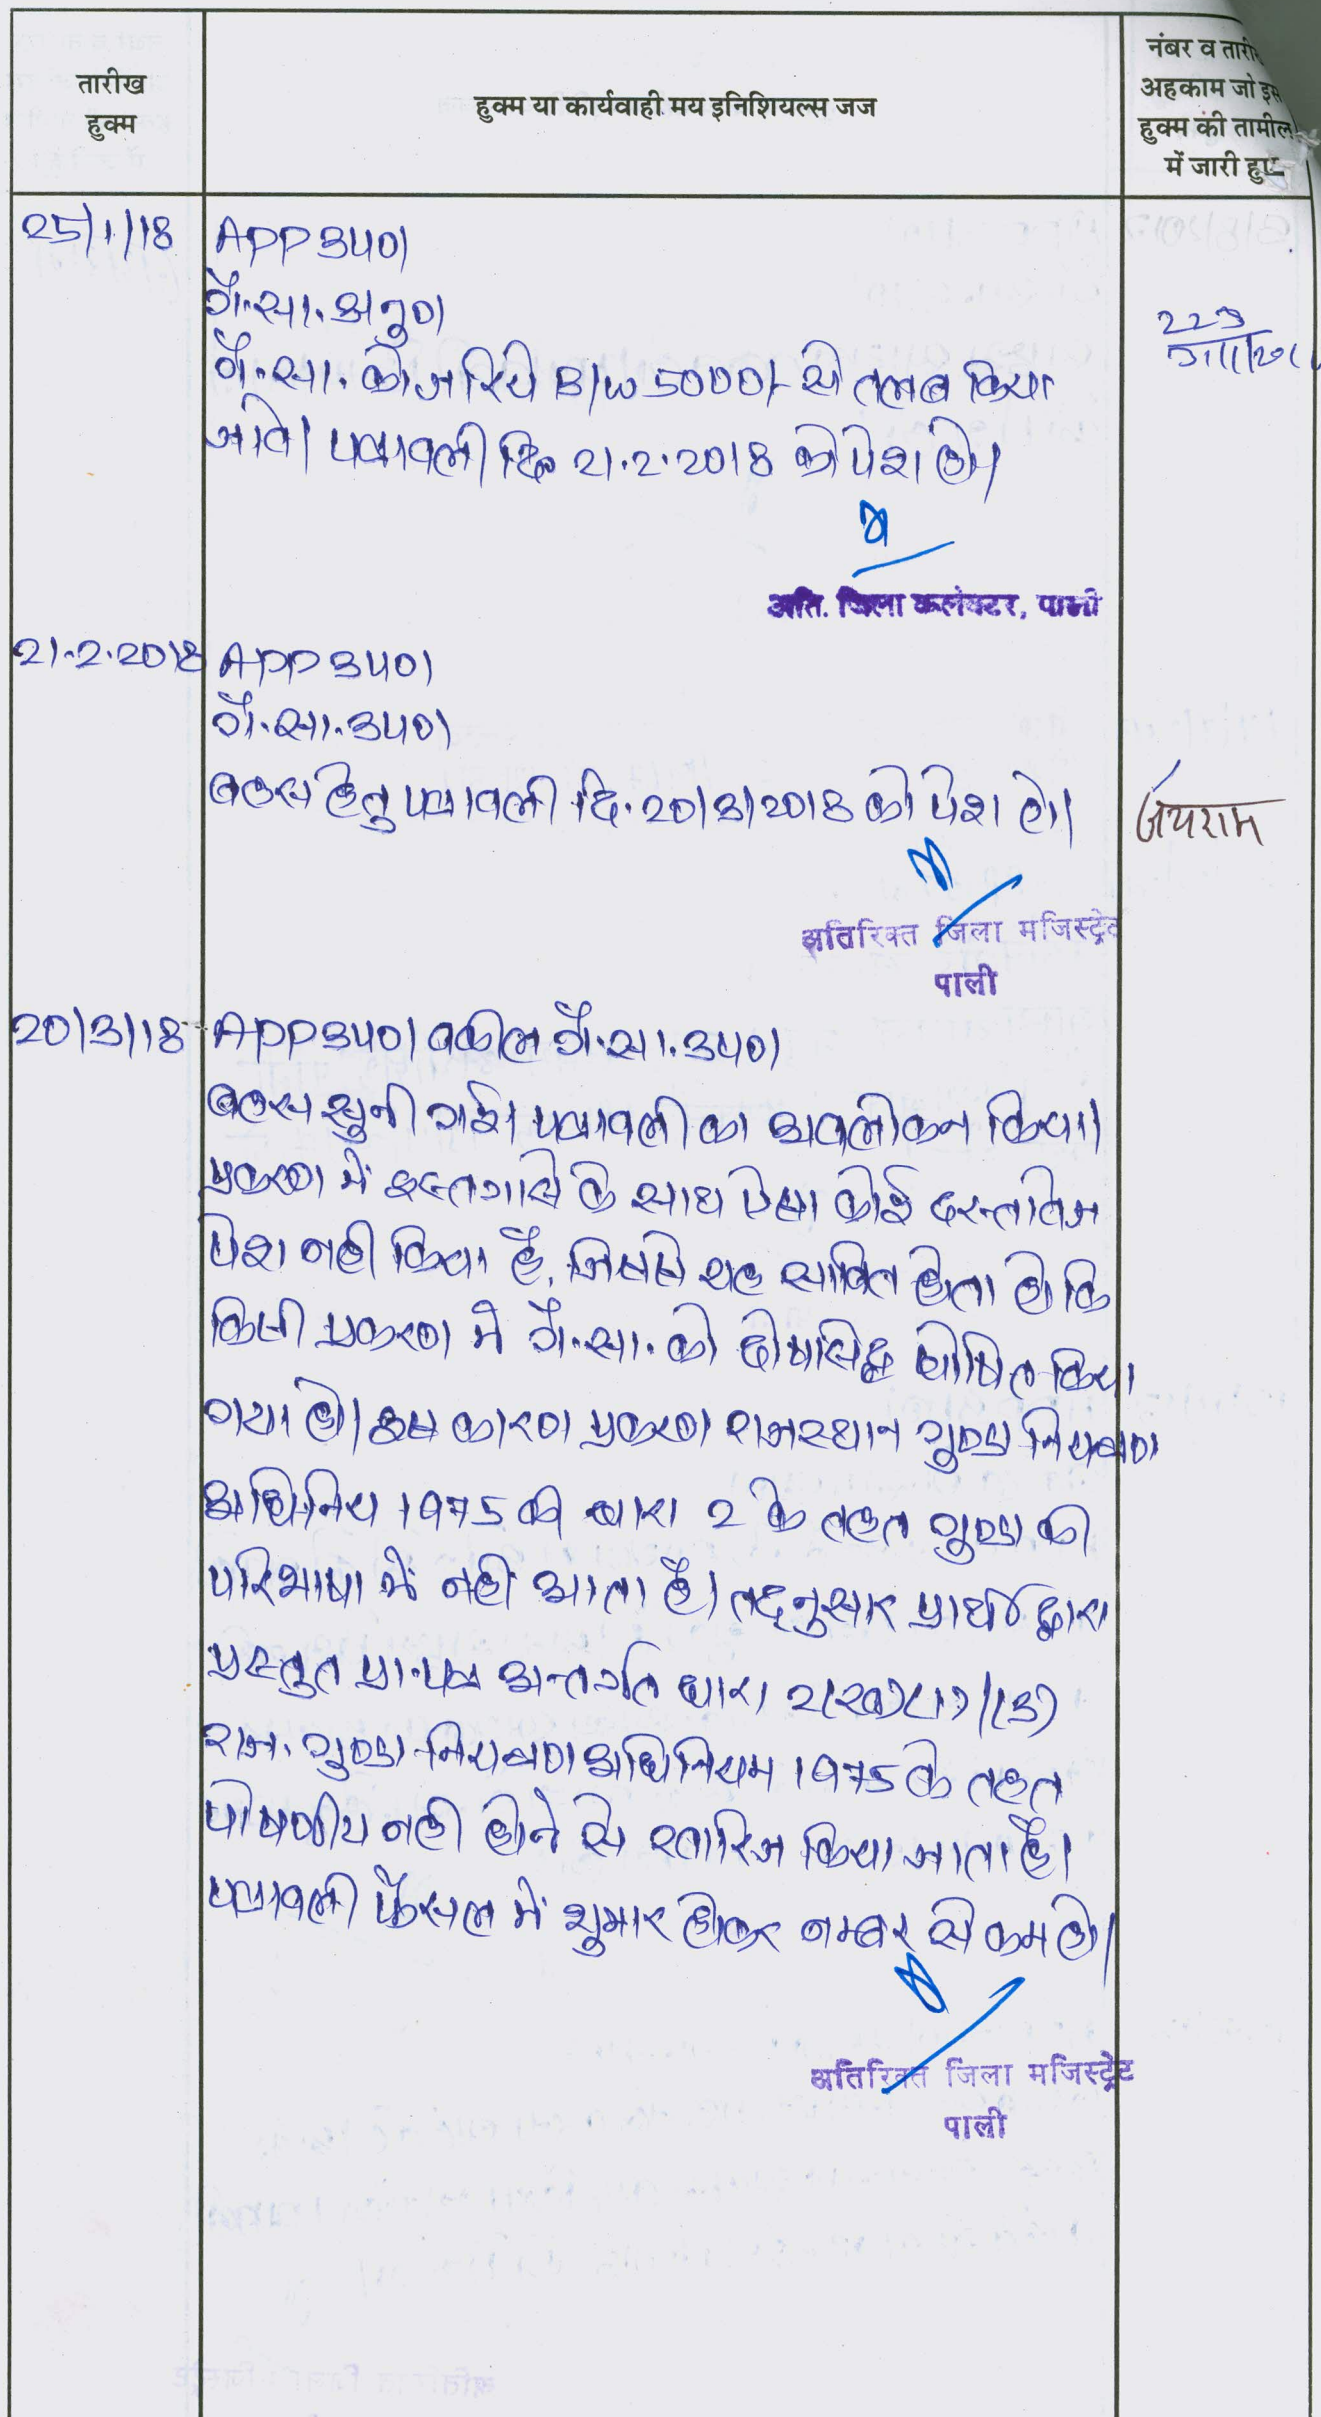 तारीख
हुक्म
हुक्म या कार्यवाही मय इनिशियल्स जज
नंबर व तारी
अहकाम जो इस
हुक्म की तामील
में जारी हुए
25/1/18
APP उप0।
गै.सा. अनु0।
गै.सा. को जरिये B/W 5000/- से तलब किया
जावे। पत्रावली दि0 21.2.2018 को पेश हो।
223
अति. जिला कलेक्टर, पाली
21.2.2018
APP उप0।
गै.सा. उप0।
बहस हेतु पत्रावली दि. 20/3/2018 को पेश हो।
जयराम
अतिरिक्त जिला मजिस्ट्रेट
पाली
20/3/18
APP उप0। वकील गै.सा. उप0।
बहस सुनी गई। पत्रावली का अवलोकन किया।
प्रकरण में इस्तगासे के साथ ऐसा कोई दस्तावेज
पेश नही किया है, जिससे यह साबित होता हो कि
किसी प्रकरण मे गै.सा. को दोषसिद्ध घोषित किया
गया हो। इस कारण प्रकरण राजस्थान गुण्डा नियंत्रण
अधिनिय 1975 की धारा 2 के तहत गुण्डा की
परिभाषा में नहीं आता है। तद्नुसार प्रार्थी द्वारा
प्रस्तुत प्रा.पत्र अन्तर्गत धारा 2(ख)(1)/(3)
राज. गुण्डा नियंत्रण अधिनियम 1975 के तहत
पोषणीय नही होने से खारिज किया जाता है।
पत्रावली फैसल में शुमार होकर नम्बर से कम हो।
अतिरिक्त जिला मजिस्ट्रेट
पाली